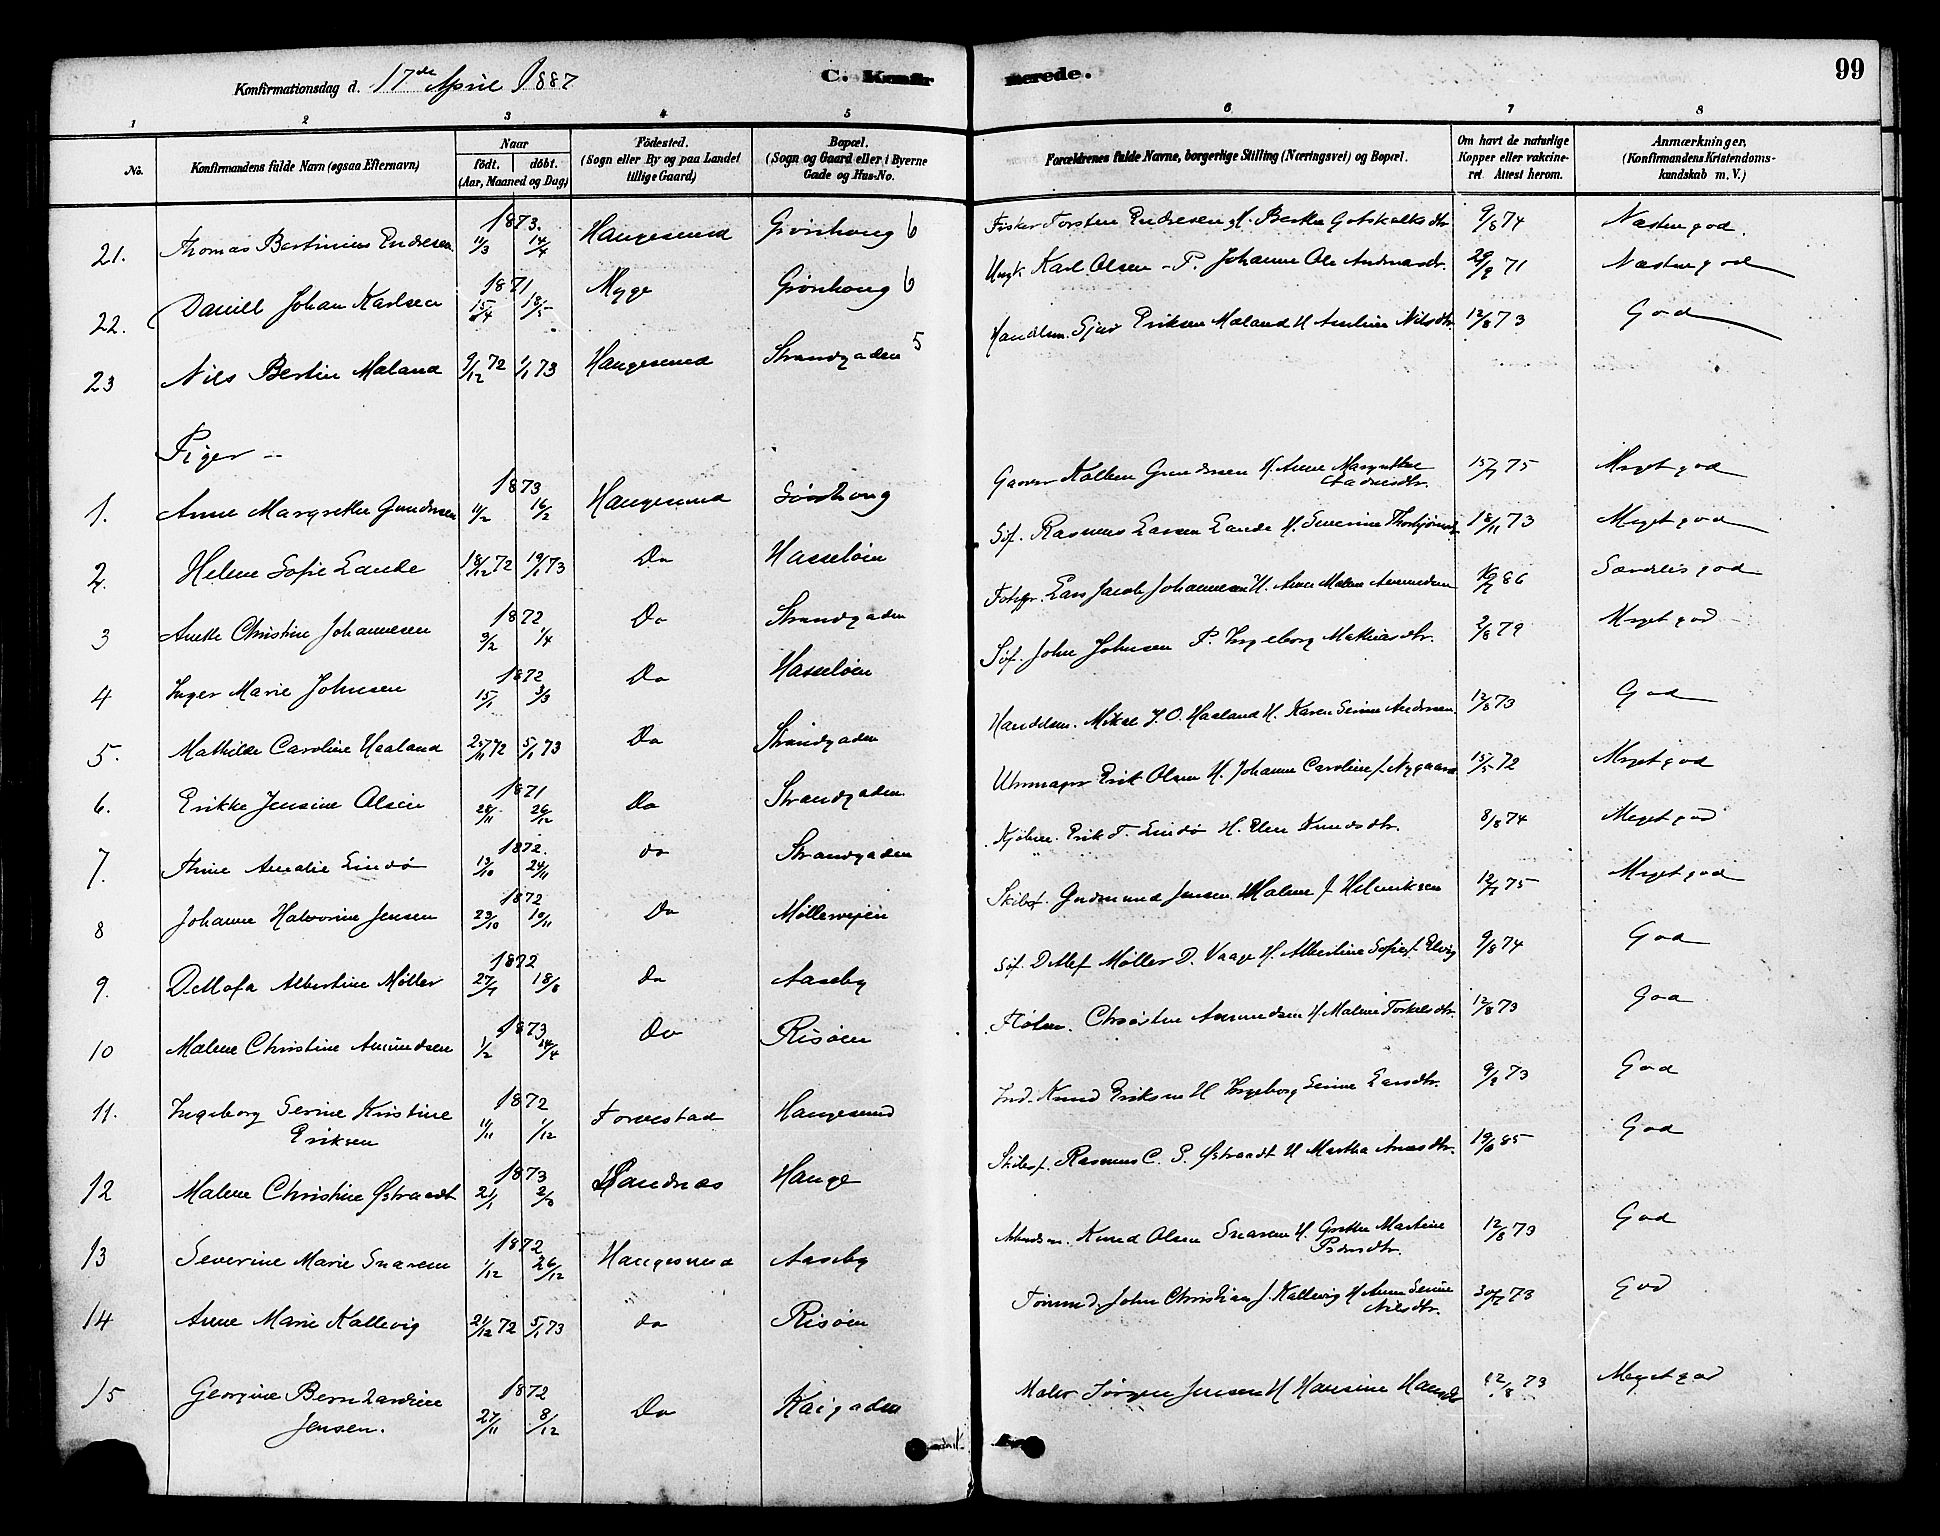 Konfirmationsdag d. 17de April 1887 C. Konfirmerede. 99
1 2 3 4 5 6 7 8
No. Konfirmandens fulde Navn (ogsaa Efternavn) Naar født. døbt. (Aar, Maaned og Dag) Födested. (Sogn eller By og paa Landet tillige Gaard) Bopæl. (Sogn og Gaard eller i Byerne Gade og Hus-No. Forældrenes fulde Navne, borgerlige Stilling (Næringsvei) og Bopæl. Om havt de naturlige Kopper eller vakcineret. Attest herom. Anmærkninger, (Konfirmandens Kristendomskundskab m. V.)
21. Thomas Bertinius Endresen 1873. 11/3 14/4 Haugesund Grønhoug 6 Fisker Torsten Endresen H. Berthe Gotskalksdtr. 9/8 74 Næsten god.
22. Daniel Johan Karlsen 1871 15/4 18/5 Myge Grønhoug 6 Karl Olsen - P. Johanne Ole Andreasdtr. 29/9 71 Næsten god
23 Nils Bertin Maland 9/12 72 1/1 73 Haugesund Strandgaden 5 Handlsm. Sjur Eriksen Maland H Nilsdtr. 12/8 73 God
Piger --
1. Anne Margrethe Gundersen 1873 11/2 16/2 Haugesund Sørhoug Garver Kolben Gundersen H. Anne Margrethe Aadnesdtr. 15/7 75 Meget god
2. Helene Sofie Lande 18/12 72 19/1 73 Do Hasseløen Søf. Rasmus Larsen Lande H. Severine Thorbjørnsd 18/11 73 Meget god
3 Anette Christine Johannesen 1872 9/2 1/4 Do Strandgaden Fotogr. Lars Jacob Johannesen H. Anne Malene Amundsen 86 Særdeles god
4 Inger Marie Johnsen 1872 15/1 3/3 Do Hasseløen Søf. John Johnsen P. Ingeborg Mathiasdtr. 2/8 79 Meget god
5. Mathilde Caroline Haaland 25/11 72 5/1 73 Do Strandgaden Handelsm. Mikal J. O. Haaland H. Karen Serine Andersen. 12/8 73 God
6. Erikke Jensine Olsen 1871 28/11 26/12 Do Strandgaden Uhrmager Erik Olsen H. Johanne Caroline f. Nygaard 15/5 72 Meget god
7. Thine Amalie Lindø 1872. 13/10 24/11 do Strandgaden Kjøbm. Erik T. Lindø H. Elen Knudsdtr. 8/8 74 Meget god
8 Johanne Halvorine Jensen 1872 23/10 10/11 Do Møllerveien Skibsf. Gudmund Jensen H Malene f Helmiksen 12/7 75 Meget god
9. Detlofa Albertine Møller 1872 27/7 18/8 Do Aaseby Søf. Detlef Møller D. Vaage H. Albertine Sofie f. Elvig 9/8 74 God
10 Malene Christine Amundsen 1873 1/2 14/4 Do Risøen Christen Amundsen H Malene Torkelsdtr. 12/8 73 God
11. Ingeborg Serine Kristine Eriksen 1872 11/11 1/12 Torvestad Haugesund Ind. Knud Eriksen H Ingeborg Serine Larsdtr. 9/2 73 God
12 Malene Christine Østraadt 1873 21/1 2/3 Sandnæs Hauge Skibsf. Rasmus C. P. Østraadt H Martha Aasdtr. 19/6 85 God
13 Severine Marie Snarem 1872 1/12 26/12 Haugesund Aaseby Arbeidsm. Knud Olsen Snarem H. Grethe Martine Pedersdtr. 12/8 73 God
14 Anne Marie Kallevig 21/12 72 5/1 73 do Risøen Tømmd. John Christian J. Kallevig H Anne Serine Nilsdtr. 30/7 73 God
15 Georgine Bernhardine Jensen. 1872 27/11 8/12 Do Kaigaden Maler Jørgen Jensen H Hansine 12/8 73 Meget god